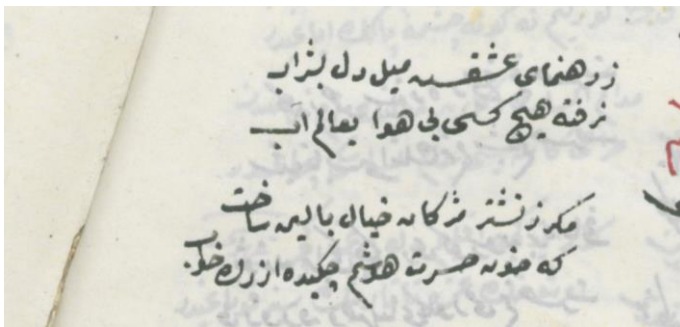 ز رهنمای عشقست میل دل بشراب
نرفته هیچ کسی بی هوا بعالم آب
مگر ز نشتر مژگان خیال بالین ساخت
که خون حسرت هوشم چکیده از رگ خواب